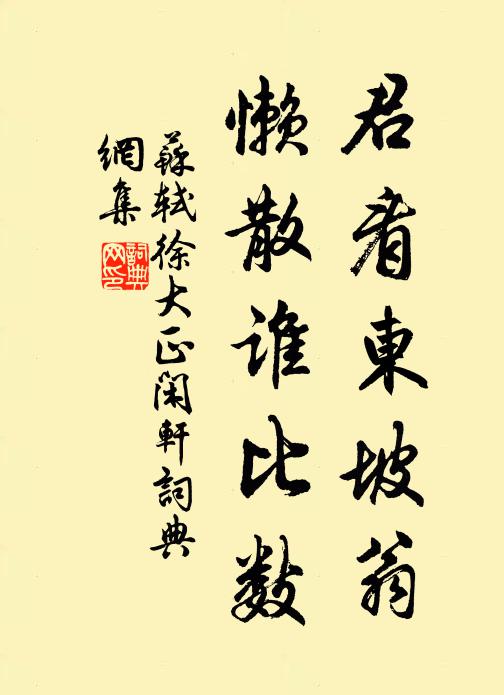 君看東坡翁
懒散谁比数
蘇軾徐大正閑軒詞典
網集
詞典
网印